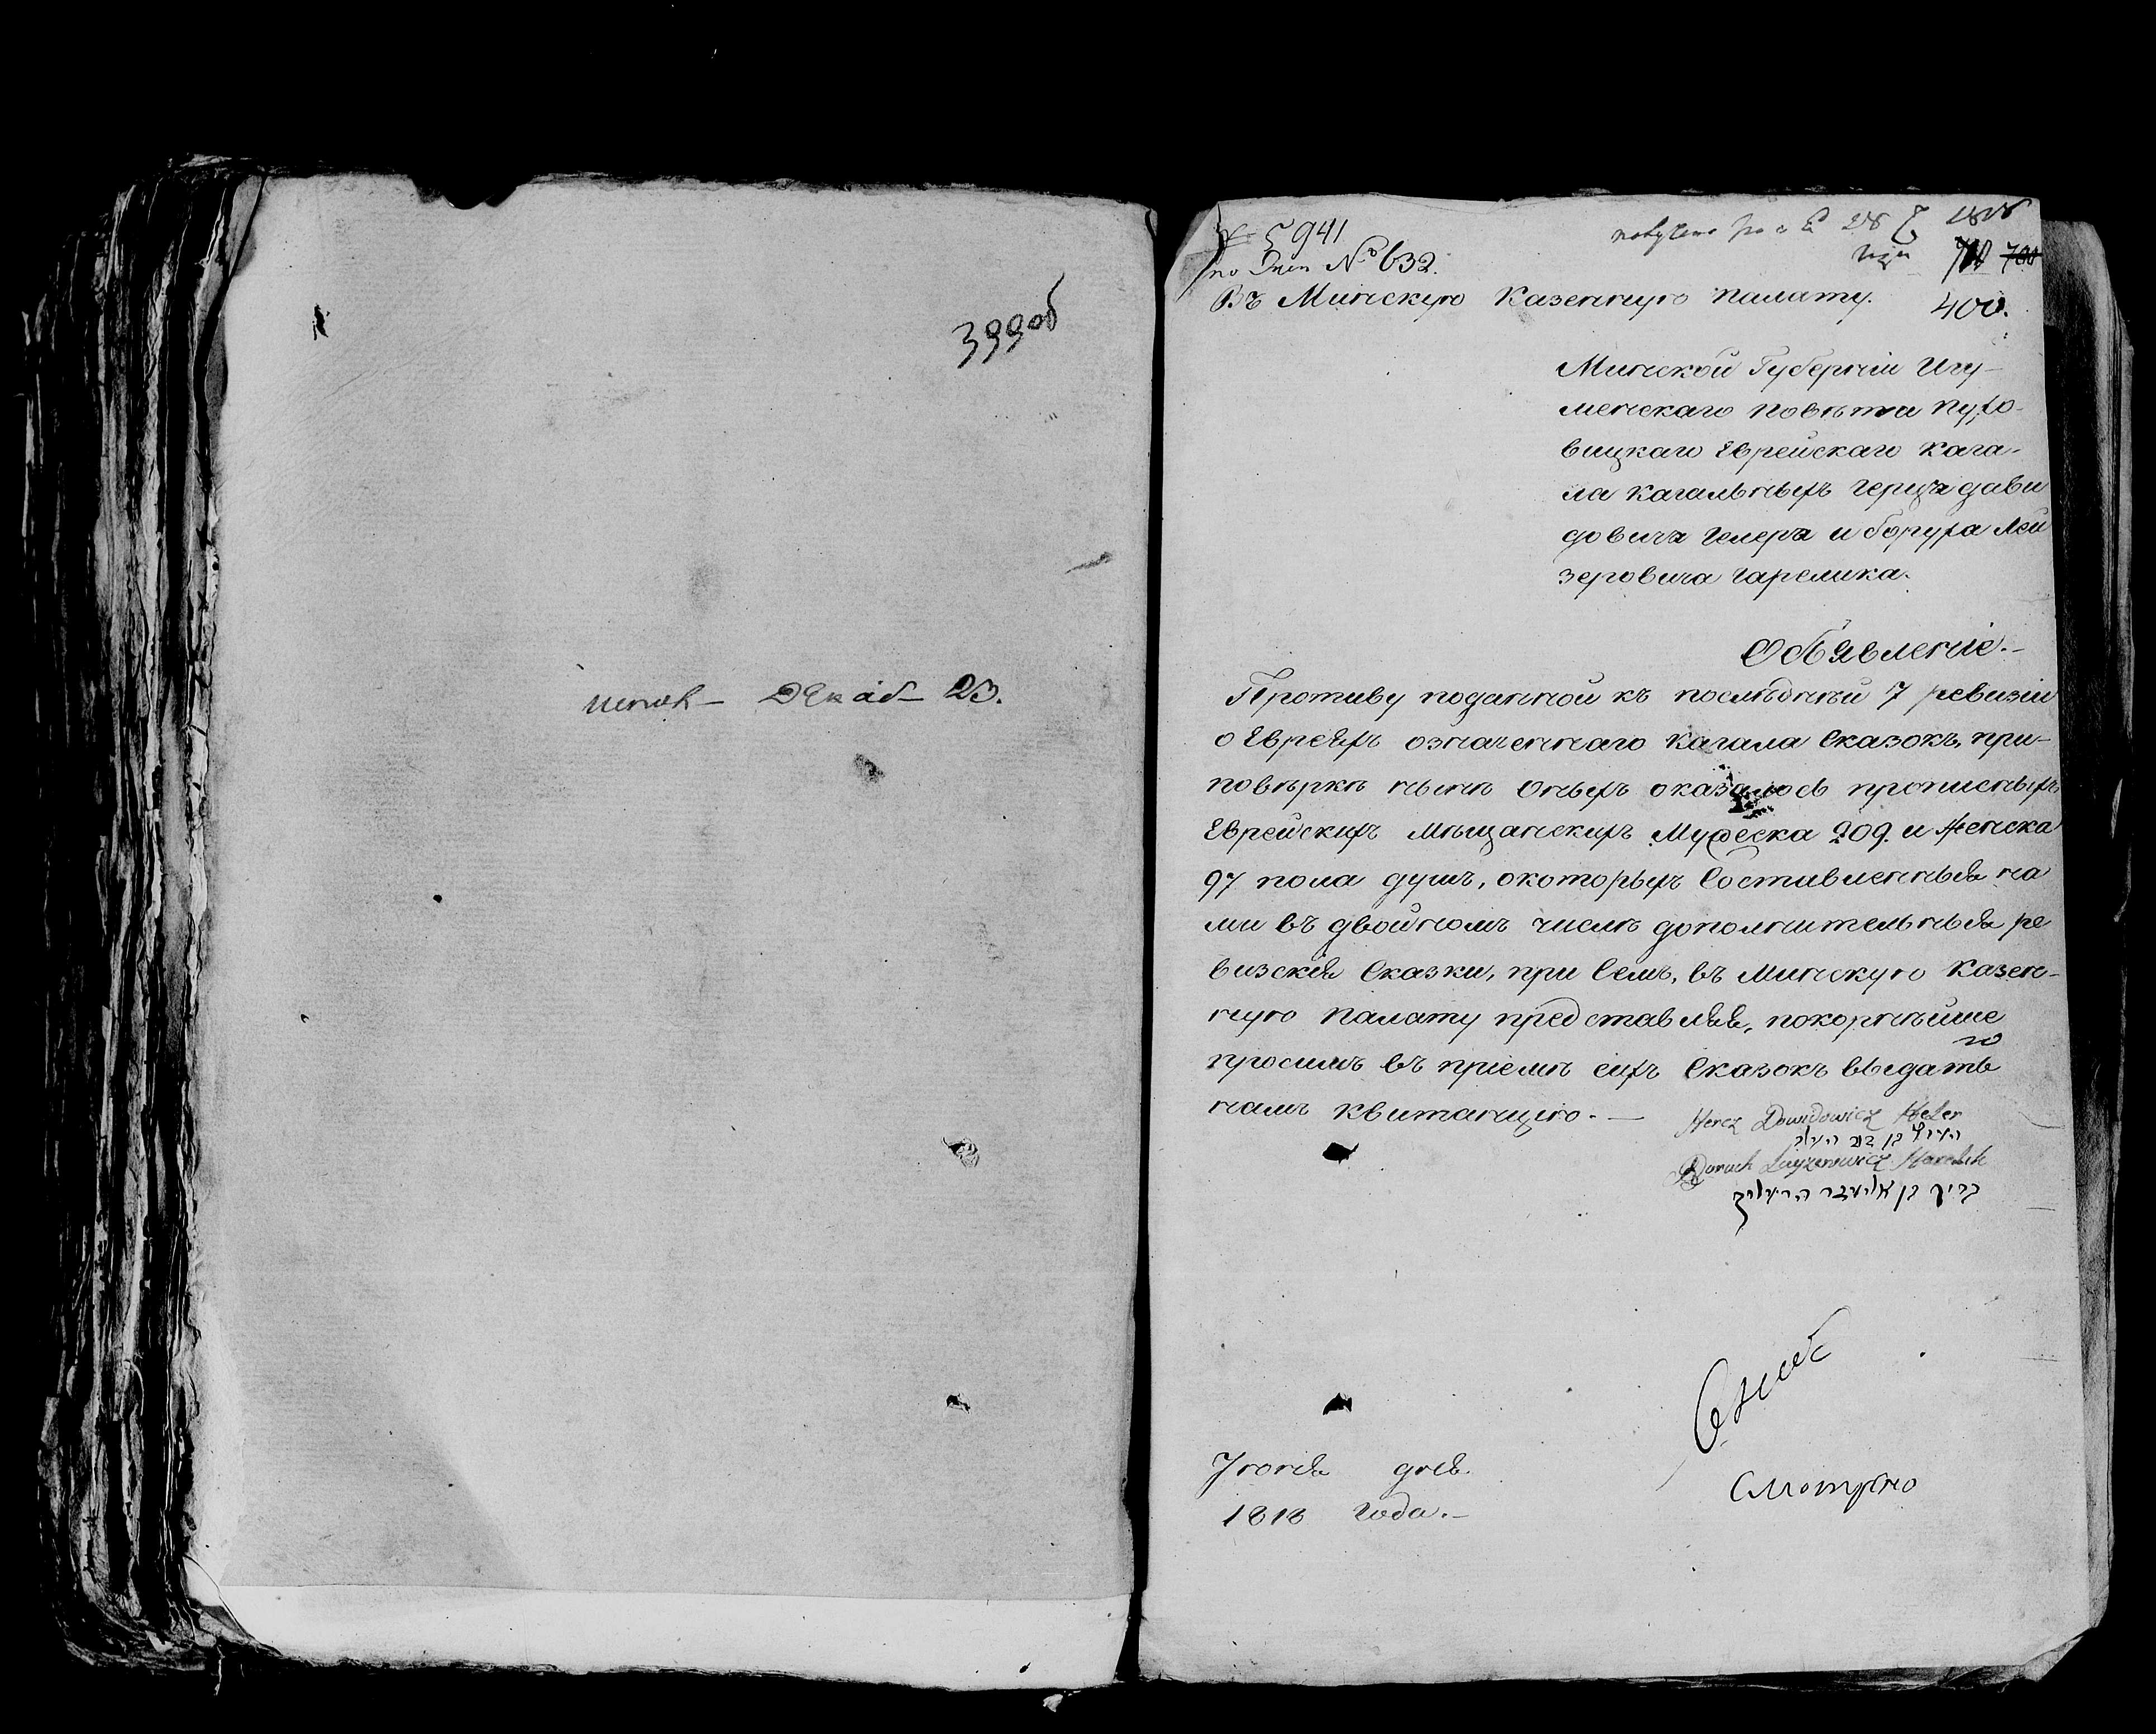 399об
Декаб 23.
5941
по N° 632.
1818
700
Въ Минскую Казенную палату.
400.
Минской Губерніи Игу-
менскаго повѣта пухо-
вицкаго Еврейскаго Кага-
ла кагальныхъ Герца дави
довича Гелера и боруха Лей
зеровича Гарелика.
Объявленіе.-
Противу поданной къ послѣдней 7 ревизіи
о Евреяхъ означеннаго кагала Сказокъ, при-
повѣркѣ нынѣ оныхъ оказалось прописныхъ
Еврейскихъ мѣщанскихъ Мужеска 209. и Женска
97 пола душъ, о которыхъ Составленныя на
ми въ двойномъ числѣ дополнительныя ре
визскія Сказки, при Семъ, въ Минскую Казен-
ную палату представляя, покорнѣйше
просимъ въ пріемѣ сихъ Сказокъ выдать
намъ квитанцію.-
Hercz Dawidowicz Heler
הירץ בן דוד העלר
Boruch Leyzerowicz Harelik
ברוך בן אליעזר הרעליק
Іюня дня
1818 года.-
Смотрѣно